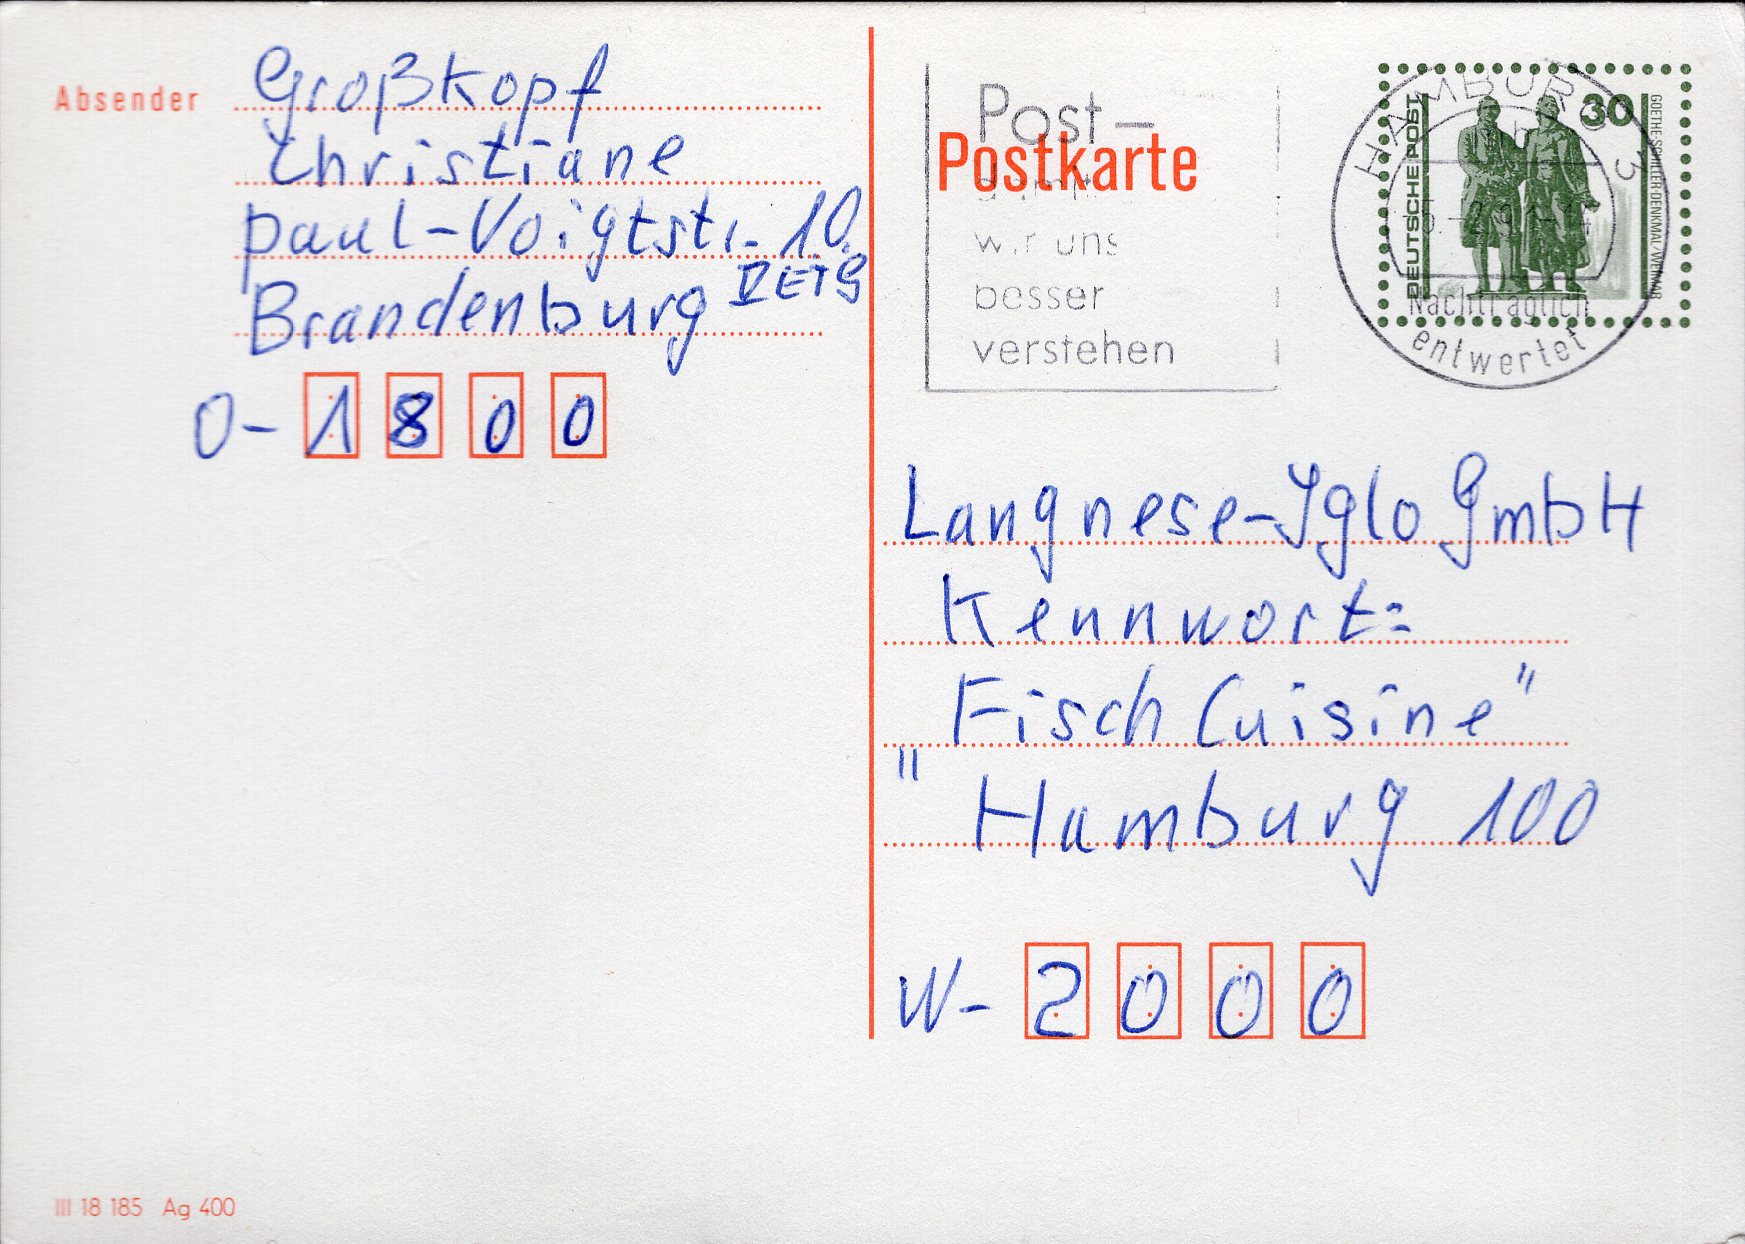 Absender Großkopf
Christiane
Paul-Voigtstr. 10
Brandenburg V ETG
O-1800
Postkarte
Post-
damit
wir uns
besser
verstehen
HAMBURG 3
-2.91-
Nachträglich
entwertet
DEUTSCHE POST
30
GOETHE-SCHILLER-DENKMAL/WEIMAR
Langnese-Iglo GmbH
Kennwort:
Fisch Cuisine"
" Hamburg 100
W-2000
III 18 185 Ag 400